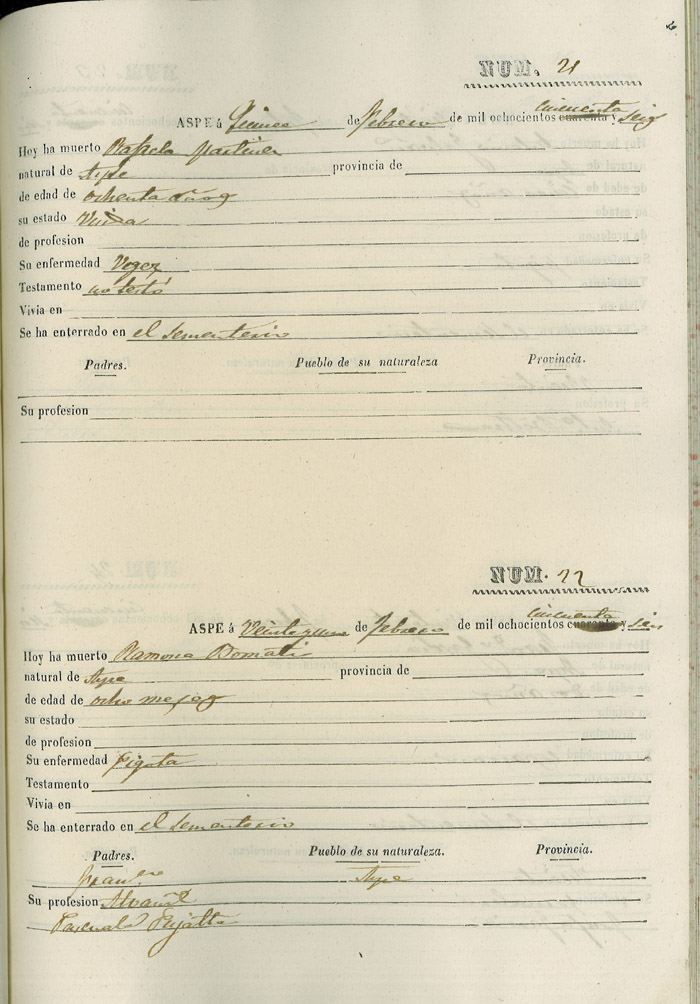 NUM. 21
ASPE á Quince de febrero de mil ochocientos cincuenta cuarenta y seis
Hoy ha muerto Rafaela Martinez
natural de Aspe provincia de
de edad de ochenta años
su estado Viuda
de profesion
Su enfermedad Vegez
Testamento no testó
Vivia en
Se ha enterrado en el sementerio
Padres. Pueblo de su naturaleza Provincia.
Su profesion
NUM. 22
ASPE á Veinte y uno de febrero de mil ochocientos cincuenta cuarenta y seis
Hoy ha muerto Ramona
natural de Aspe provincia de
de edad de ocho meses
su estado
de profesion
Su enfermedad Pigota
Testamento
Vivia en
Se ha enterrado en el sementerio
Padres. Pueblo de su naturaleza. Provincia.
Aspe
Su profesion Alvañil
Pascuala